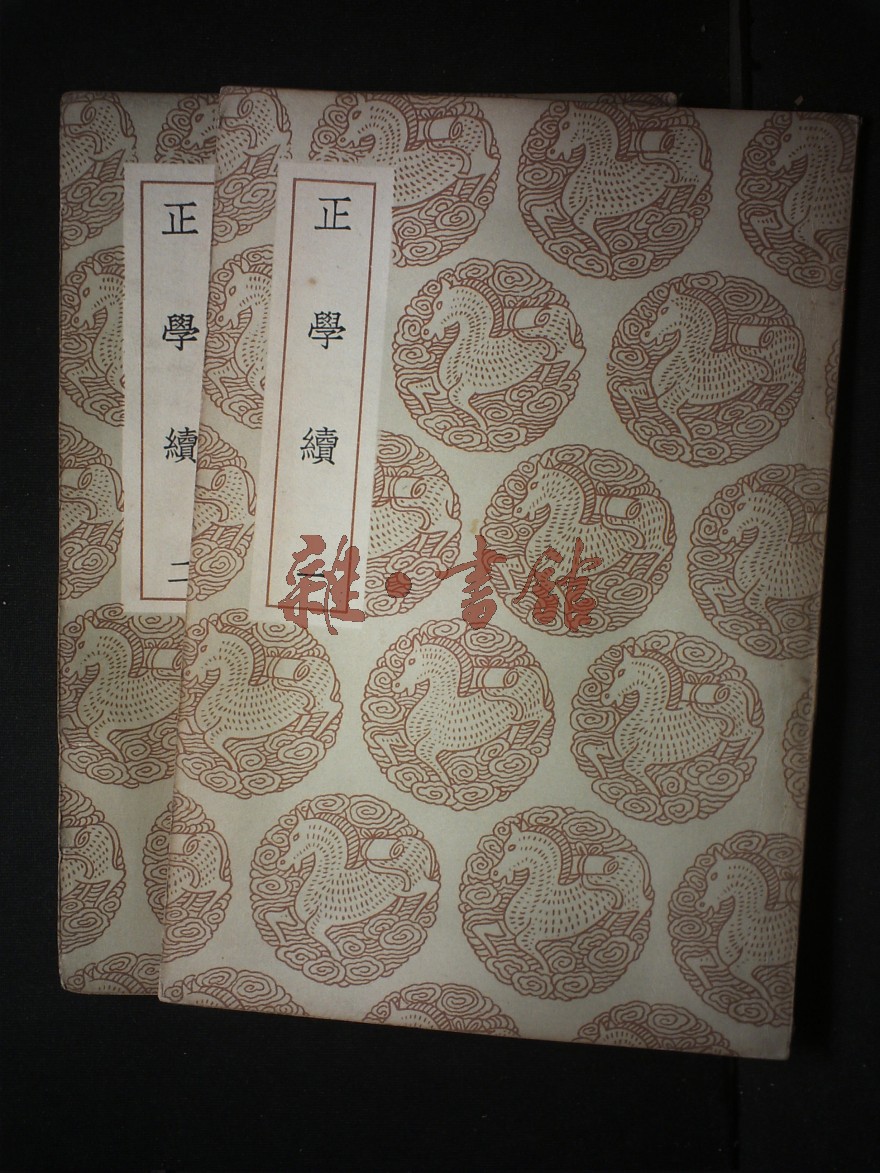 正學續 二
正學續 一
雜·書館